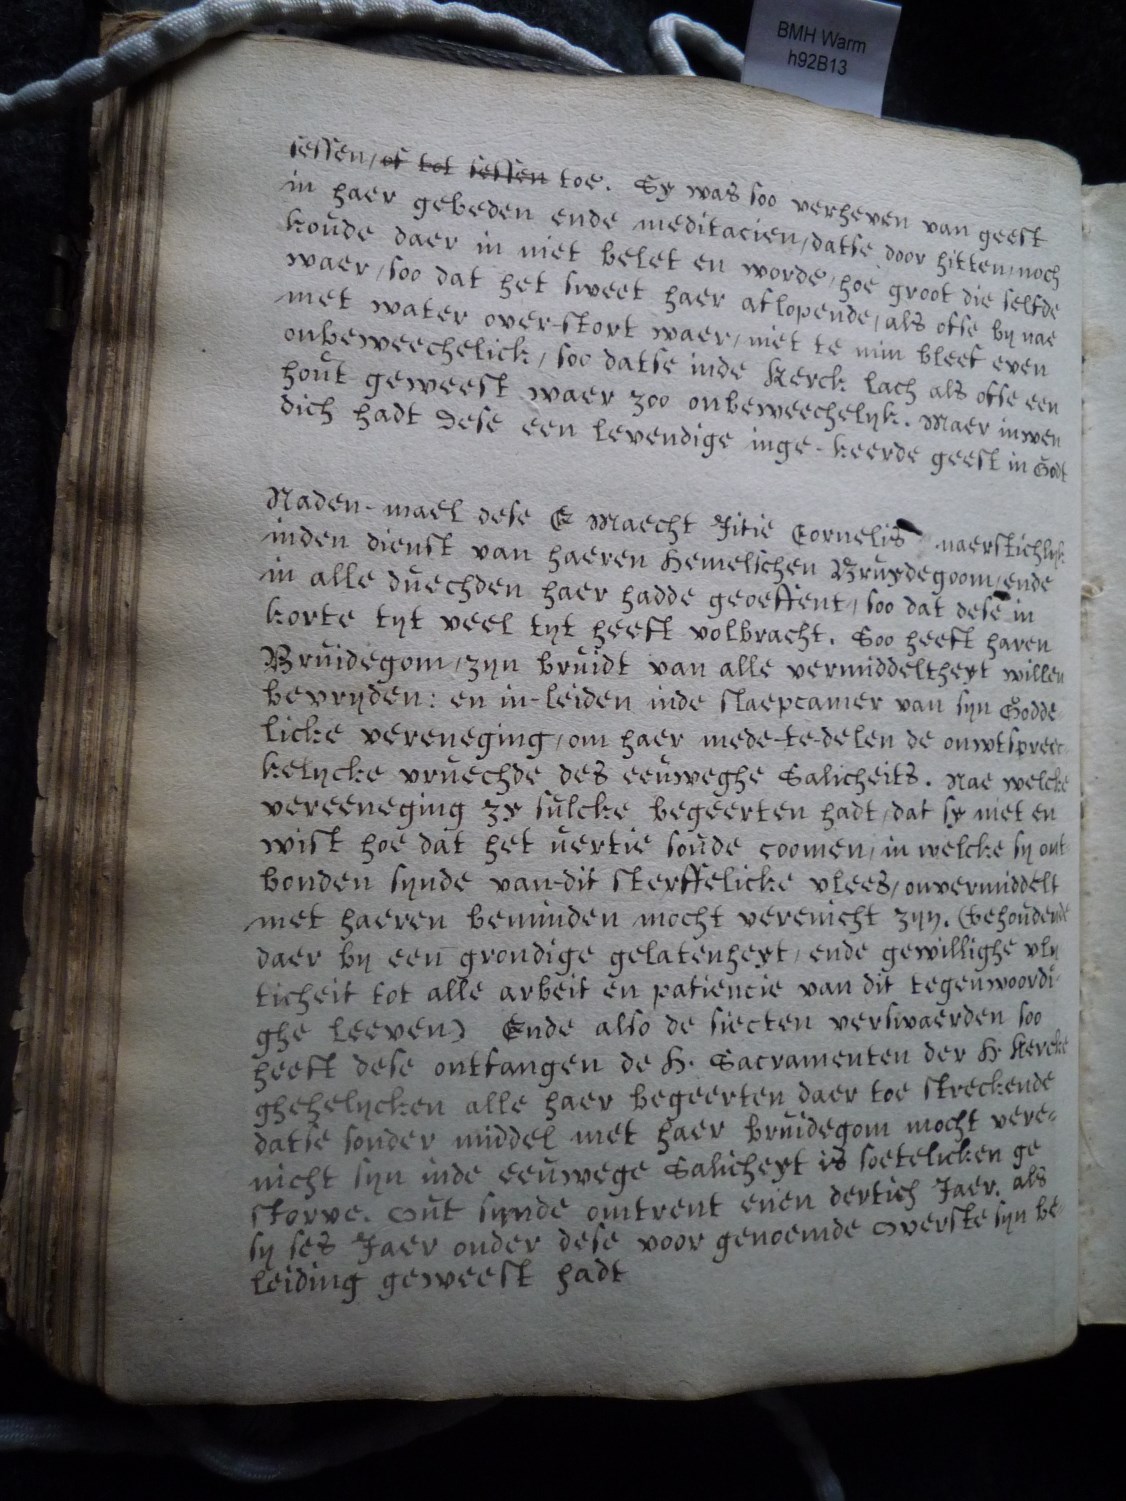 BMH Warm
h92B13
sessen, of tot sessen toe. Sy was soo verheven van geest
in haer gebeden ende meditacien, datse door hitten, noch
koude daer in niet belet en worde, hoe groot die selfde
waer, soo dat het sweet haer aflopende, als ofse bij nae
met water over-stort waer, niet te min bleef even
onbeweechelick, soo datse inde Kerck lach als ofse een
hout geweest waer zoo onbeweechelijk. Maer inwen
dich hadt dese een levendige inge-keerde geest in Godt
Naden-mael dese E Maecht Jitie Cornelis naerstichlijk
inden dienst van haeren Hemelschen Bruydegoom, ende
in alle duechden haer hadde geoeffent, soo dat dese in
korte tijt veel tijt heeft volbracht. Soo heeft haren
Bruidegom, zijn bruidt van alle vermiddeltheyt willen
bevrijden: en in-leiden inde slaepcamer van sijn Godde
licke vereneging, om haer mede-te-delen de onwtspreec
kelijcke vruechde des eeuweghe Salicheits. Nae welcke
vereeneging zy sulcke begeerten hadt, dat sy niet en
wist hoe dat het uertie soude coomen, in welcke sij ont
bonden sijnde van-dit sterffelicke vlees, onvermiddelt
met haeren beminden mocht verenicht zijn. (behoudende
daer bij een grondige gelatenheyt, ende gewillighe vlij
ticheit tot alle arbeit en patiencie van dit tegenwoordi-
ghe leeven) Ende also de siecten verswaerden soo
heeft dese ontfangen de H. Sacramenten der H. Kercke
ghehelijcken alle haer begeerten daer toe streckende
datse sonder middel met haer bruidegom mocht vere-
nicht sijn inde eeuwege Salicheyt is soetelicken ge
storve. Out sijnde omtrent enen dertich Jaer. als
sij ses Jaer onder dese voor genoemde Overste sijn be-
leiding geweest hadt